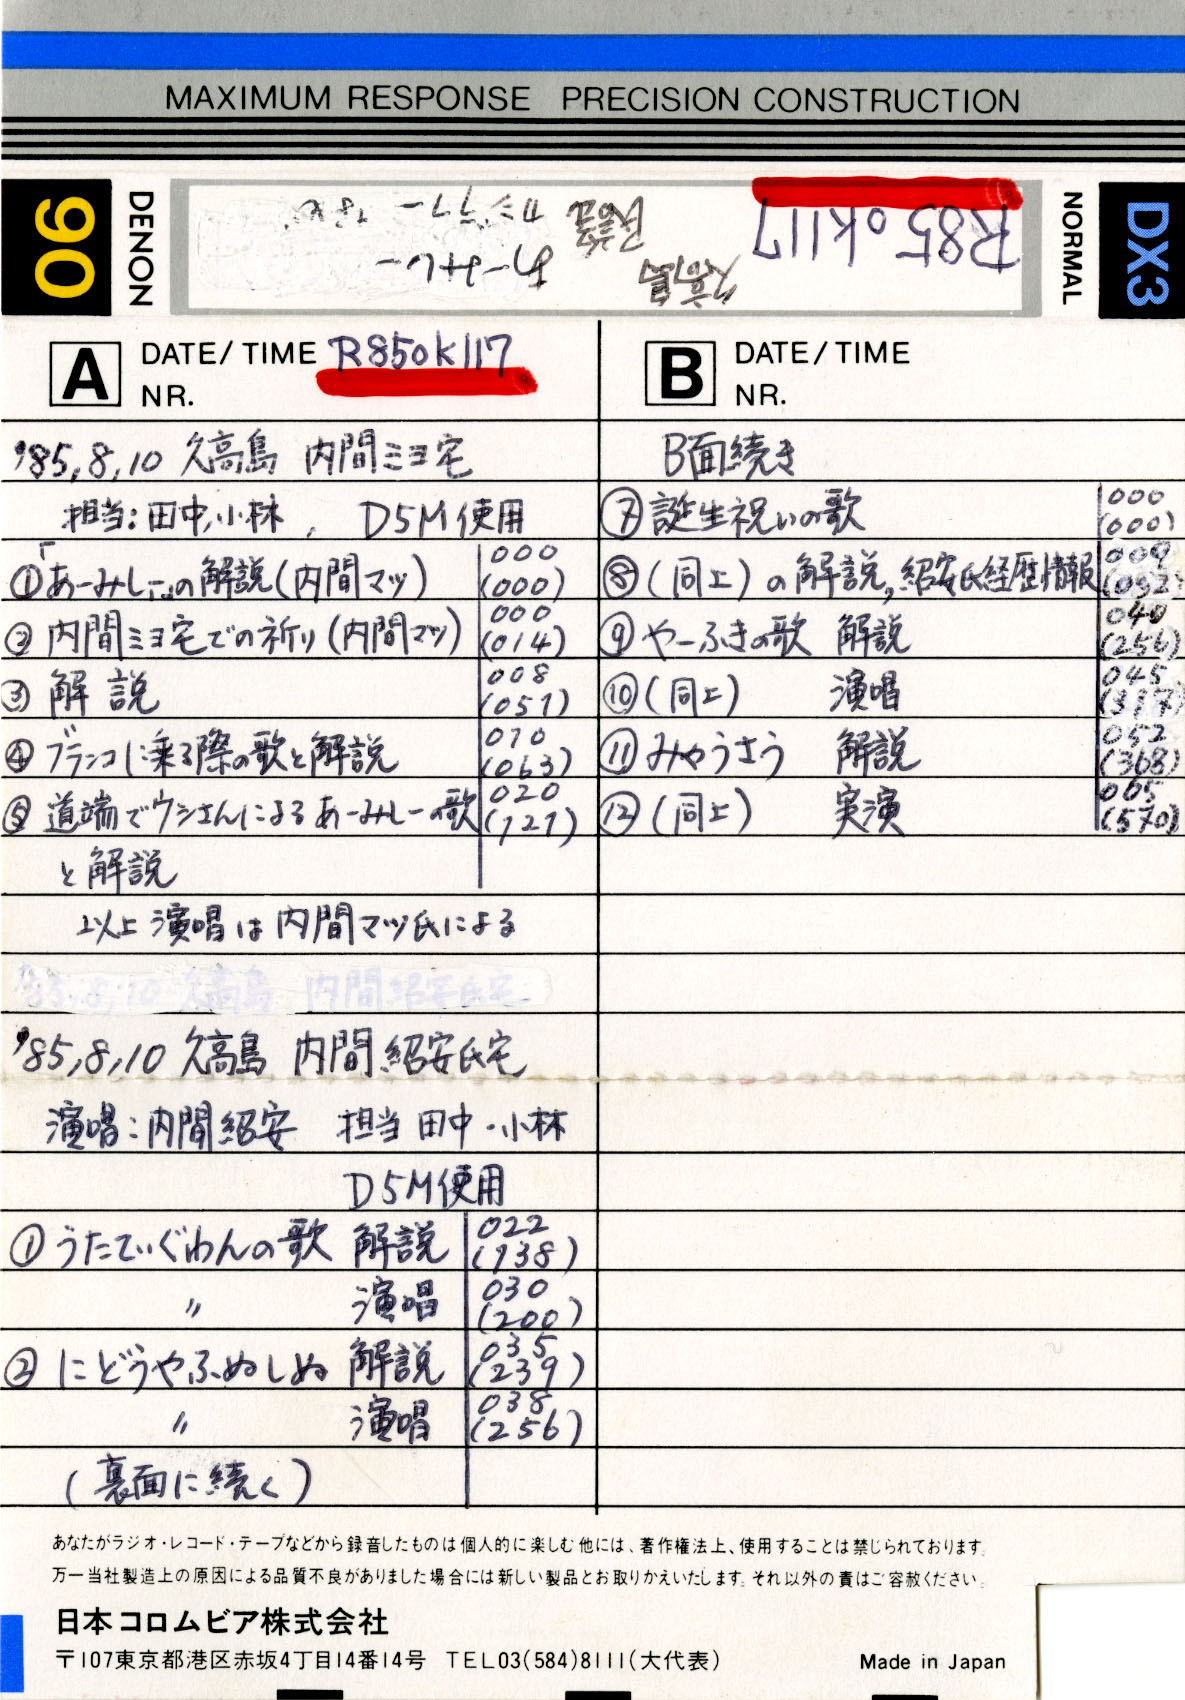 MAXIMUM RESPONSE PRECISION CONSTRUCTION
90
DENON
R850k117
久高島
あーみしー
NORMAL
DX3
A DATE/TIME R850k117
NR.
'85,8,10 久高島 内間ミヨ宅
担当:田中,小林, D5M使用
①「あーみしー」の解説(内間マツ) 000
(000)
②内間ミヨ宅での祈り(内間マツ) 000
(014)
③解説 008
(051)
④ブランコに乗る際の歌と解説 010
(063)
⑤道端でウシさんによるあーみしーの歌 020
(121)
と解説
以上演唱は内間マツ氏による
'85,8,10 久高島 内間紹安氏宅
'85,8,10 久高島 内間紹安氏宅
演唱:内間紹安 担当 田中・小林
D5M使用
①うたてぃぐゎんの歌 解説 022
(138)
〃 演唱 030
(200)
②にどうやふぬしぬ 解説 035
(239)
〃 演唱 038
(256)
(裏面に続く)
B DATE/TIME
NR.
B面続き
⑦誕生祝いの歌 000
(000)
⑧(同上)の解説,紹安氏経歴情報 009
(092)
⑨やーふきの歌 解説 040
(256)
⑩(同上) 演唱 045
(317)
⑪みゃうさう 解説 052
(368)
⑫(同上) 実演 065
(570)
あなたがラジオ・レコード・テープなどから録音したものは個人的に楽しむ他には、著作権法上、使用することは禁じられております。
万一当社製造上の原因による品質不良がありました場合には新しい製品とお取りかえいたします。それ以外の責はご容赦ください。
日本コロムビア株式会社
〒107東京都港区赤坂4丁目14番14号 TEL03(584)8111(大代表)
Made in Japan